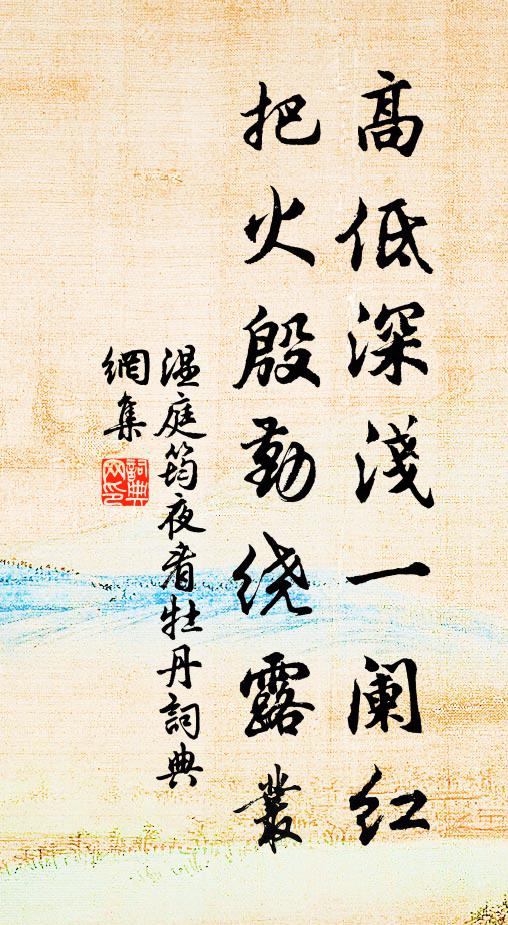 高低深淺一阑红
把火殷勤绕露叢
温庭筠夜看牡丹詞典
網集
詞典
网印